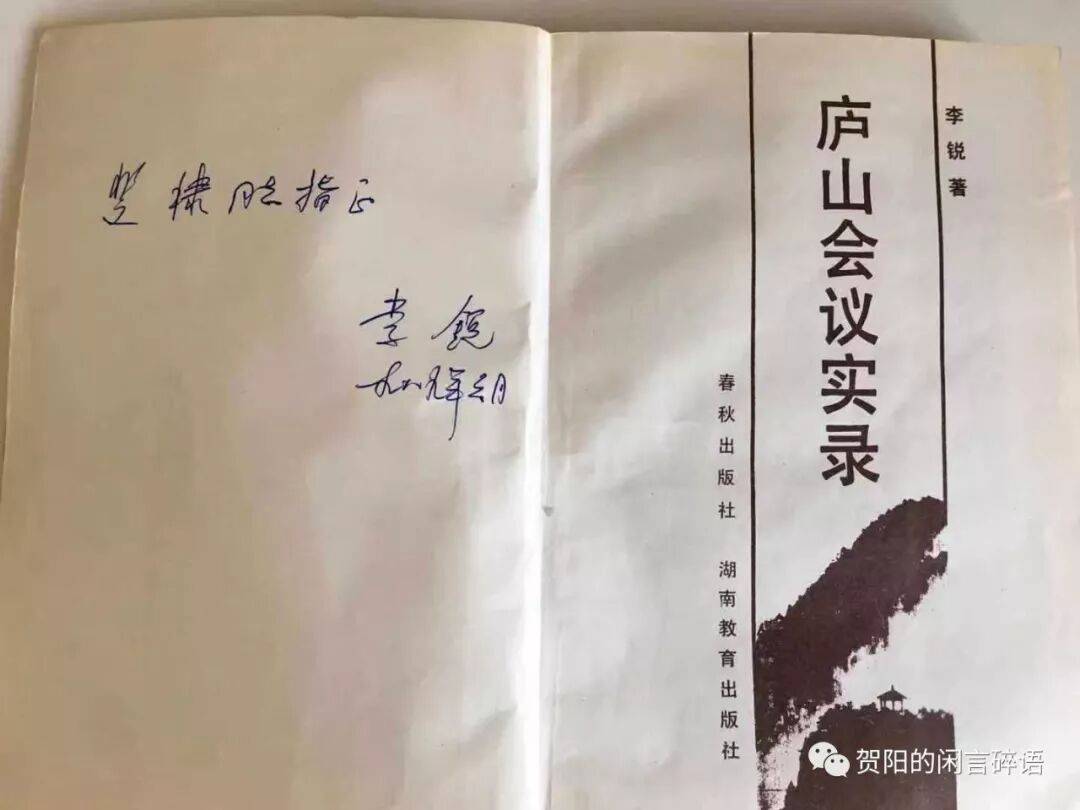 同志指正
李锐
一九八九年
李锐著
庐山会议实录
春秋出版社 湖南教育出版社
贺阳的闲言碎语